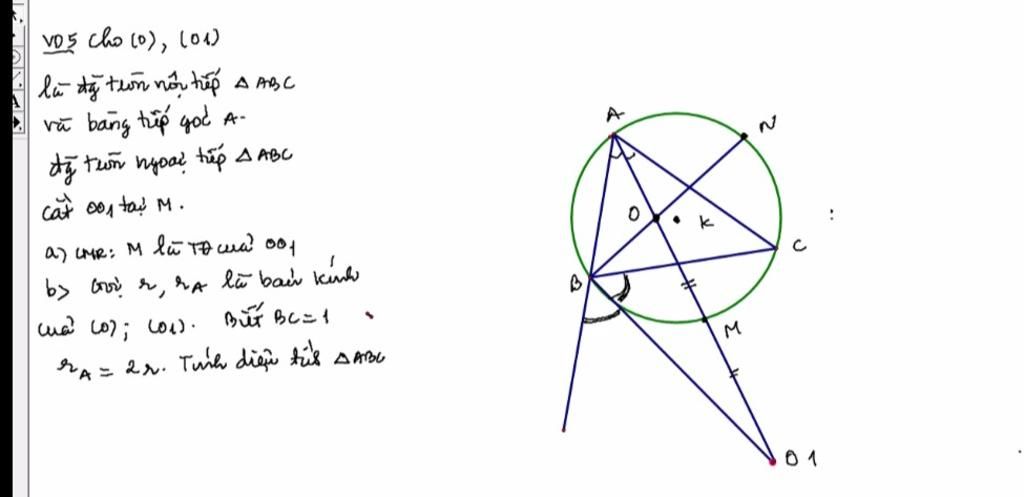 VD5 cho (O), (O1)
là đg tròn nội tiếp △ ABC
và bàng tiếp góc A.
đg tròn ngoại tiếp △ ABC
cắt OO1 tại M.
a) CMR: M là TĐ của OO1
b) Gọi r, rA là bán kính
của (O); (O1). Biết BC=1
rA = 2r. Tính diện tích △ABC
A
N
O
K
:
C
B
M
O1
A